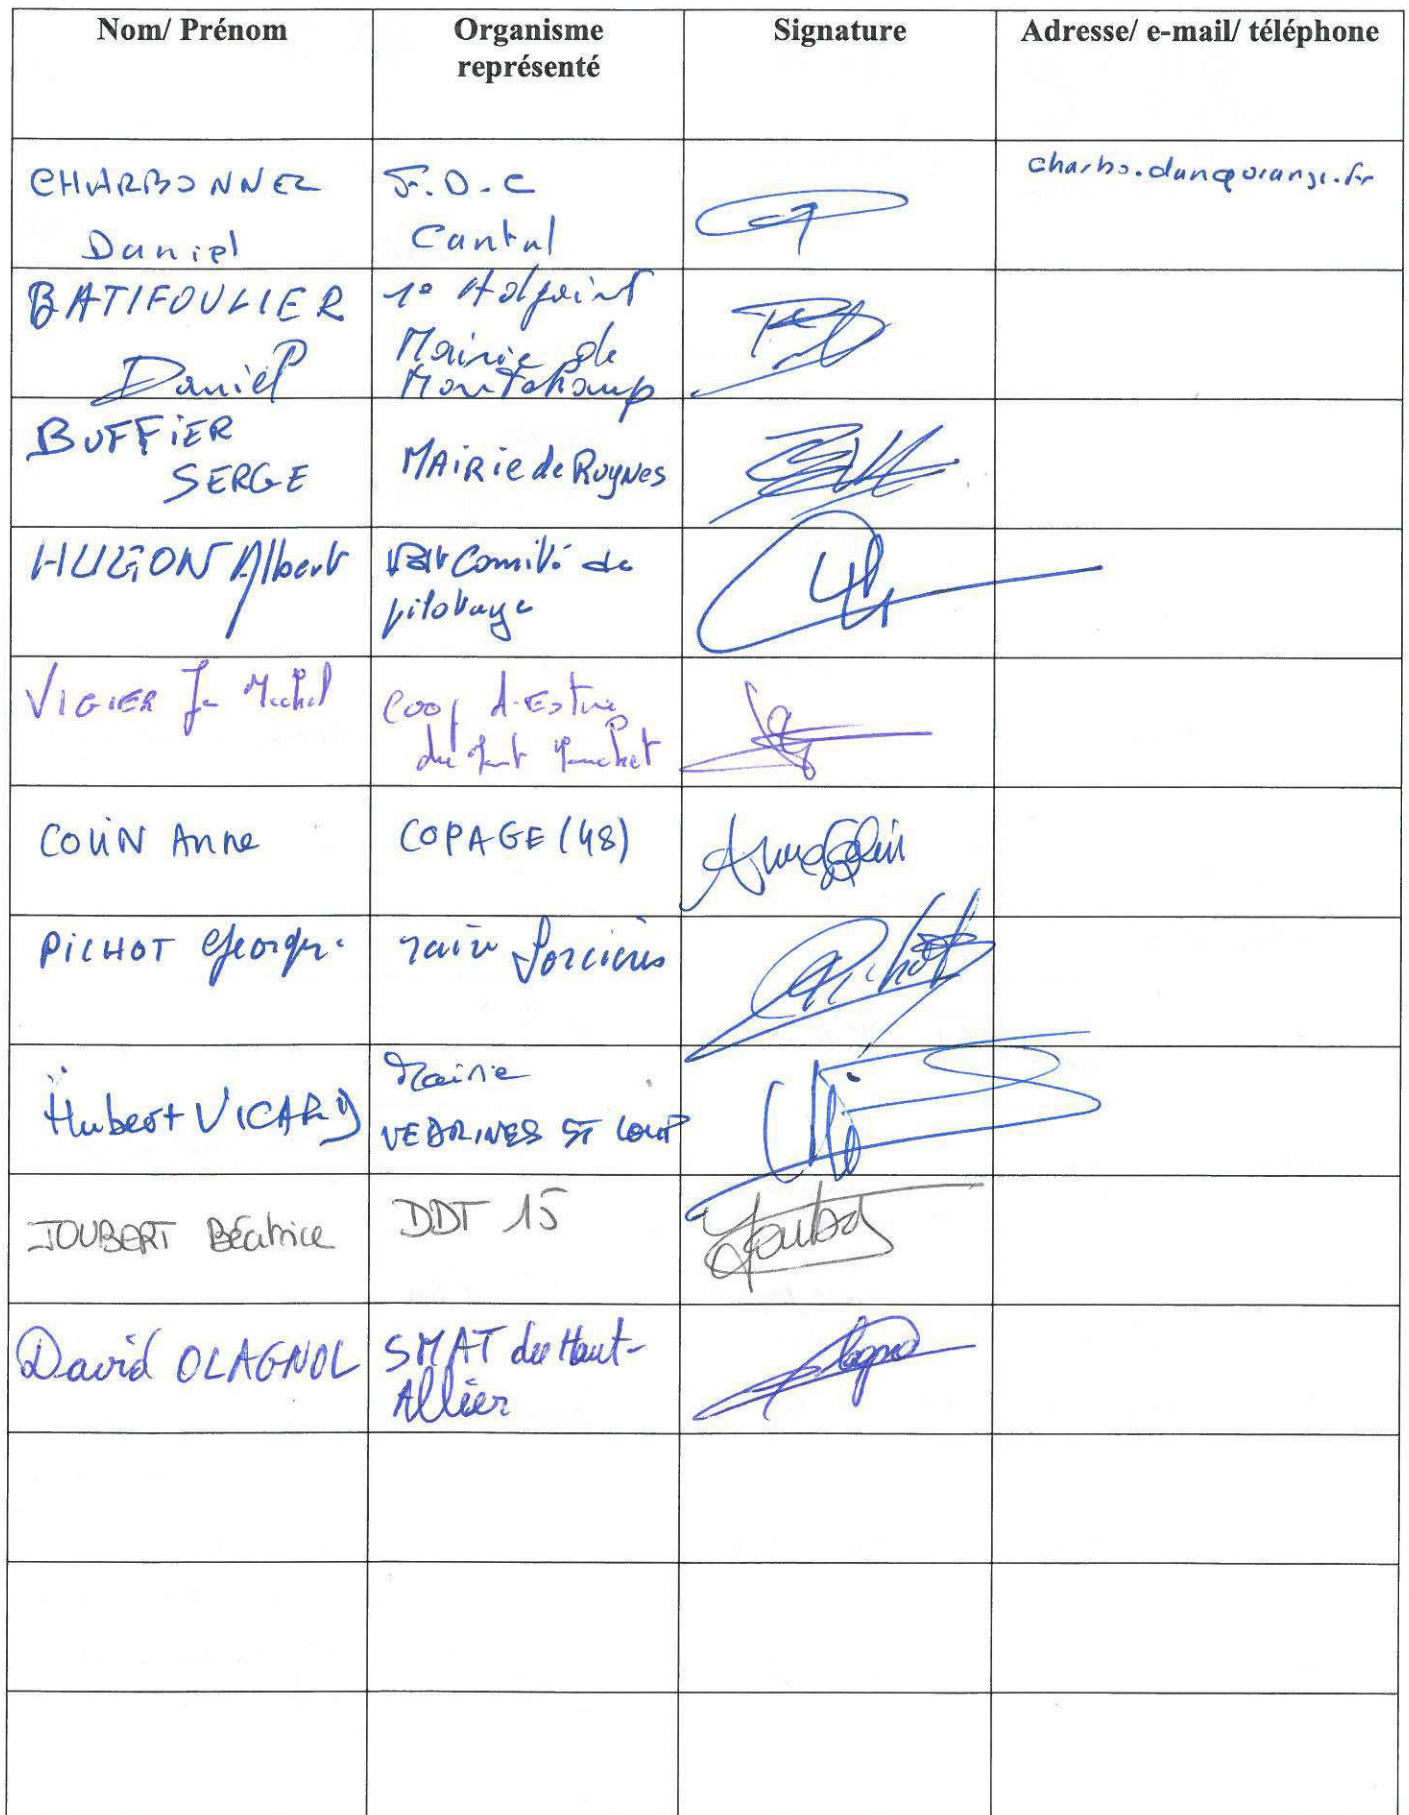 Nom/ Prénom
Organisme
représenté
Signature
Adresse/ e-mail/ téléphone
CHARBONNEL
Daniel
F.D.C
Cantal
charbo.dan@orange.fr
BATIFOULIER
Daniel
1° Adjoint
Mairie de
Montchamp
BUFFIER
SERGE
MAiRie de Ruynes
HUGON Albert
Comité de
pilotage
VIGIER Jn Michel
Coop d'Estive
du Mont Mouchet
COLIN Anne
COPAGE (48)
PICHOT Georges
Maire Lorcières
Pichot
Hubert VICARD
Mairie
VEDRINES ST LOUP
JOUBERT Béatrice
DDT 15
Joubert
David OLAGNOL
SMAT du Haut-
Allier